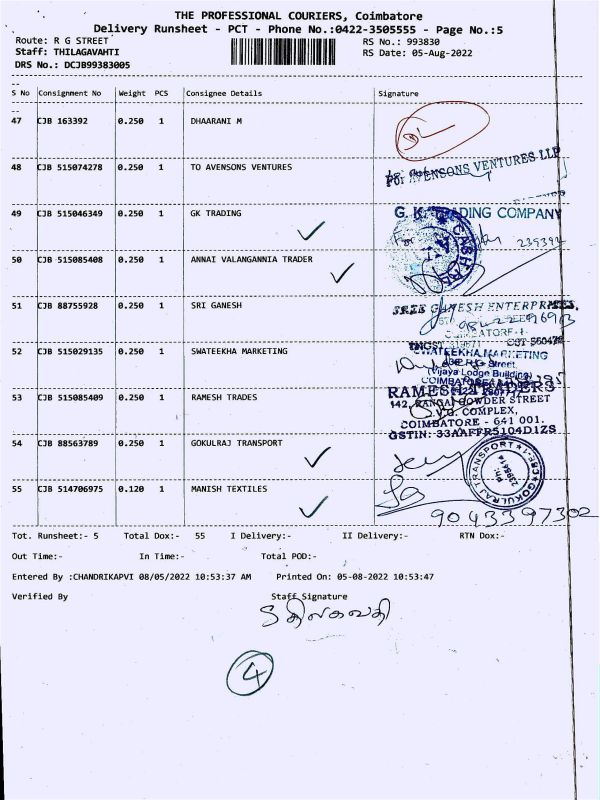 THE PROFESSIONAL COURIERS, Coimbatore
Delivery Runsheet - PCT - Phone No.:0422-3505555 - Page No.:5
Route: R G STREET RS No.: 993830
Staff: THILAGAVAHTI RS Date: 05-Aug-2022
DRS No.: DCJB99383005
S No Consignment No Weight PCS Consignee Details Signature
47 CJB 163392 0.250 1 DHAARANI M
48 CJB 515074278 0.250 1 TO AVENSONS VENTURES
For AVENSONS VENTURES LLP
49 CJB 515046349 0.250 1 GK TRADING
G. K. TRADING COMPANY
For
50 CJB 515085408 0.250 1 ANNAI VALANGANNIA TRADER
51 CJB 88755928 0.250 1 SRI GANESH
SREE GANESH ENTERPRISES,
COIMBATORE-1
52 CJB 515029135 0.250 1 SWATEEKHA MARKETING
SWATEEKHA MARKETING
Street
(Vijaya Lodge Building)
COIMBATORE
53 CJB 515085409 0.250 1 RAMESH TRADES
RAMESH TRADERS
142, RANGAI GOWDER STREET
V.G. COMPLEX,
COIMBATORE - 641 001.
GSTIN: 33AAFFR5104D1ZS
54 CJB 88563789 0.250 1 GOKULRAJ TRANSPORT
GOKULRAJ TRANSPORT
CBE-1
Ph:
55 CJB 514706975 0.120 1 MANISH TEXTILES
9043397302
Tot. Runsheet:- 5 Total Dox:- 55 I Delivery:- II Delivery:- RTN Dox:-
Out Time:- In Time:- Total POD:-
Entered By :CHANDRIKAPVI 08/05/2022 10:53:37 AM Printed On: 05-08-2022 10:53:47
Verified By Staff Signature
திலகவதி
4